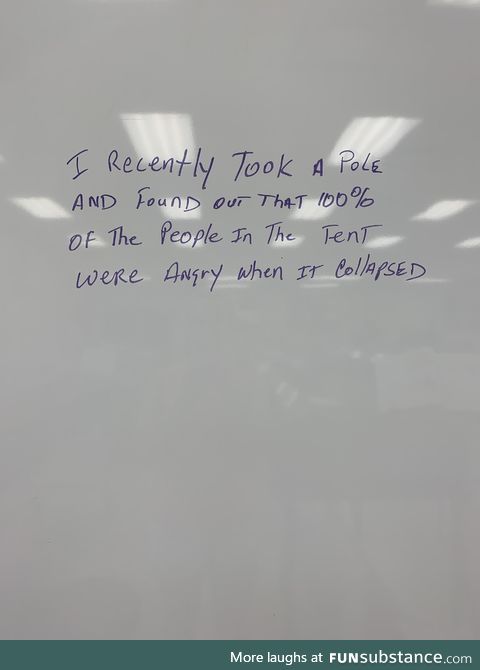 I Recently Took A Pole
AND Found out That 100%
OF The People In The Tent
were Angry when IT CollAPSED
More laughs at FUNsubstance.com